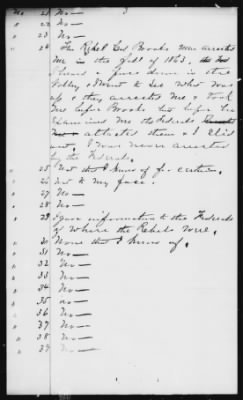 No 21 No — 3
" 22 No —
" 23 No —
" 24 The Rebel Genl Brooks men arrested
me in the fall of 1863.
I heard a fuss down in the
Valley & I went to see who was
up & they arrested me & took
me before Brooks
Examined me
attested them & I did
not. I was never arrested
by the Federals.
" 25 Not that I know of for certain.
" 26 Not to my face.
" 27 No —
" 28 No —
" 29 I gave information to the Federals
of where the Rebels were.
" 30 None that I know of.
" 31 No —
" 32 No —
" 33 No —
" 34 No —
" 35 No —
" 36 No —
" 37 No —
" 38 No —
" 39 No —